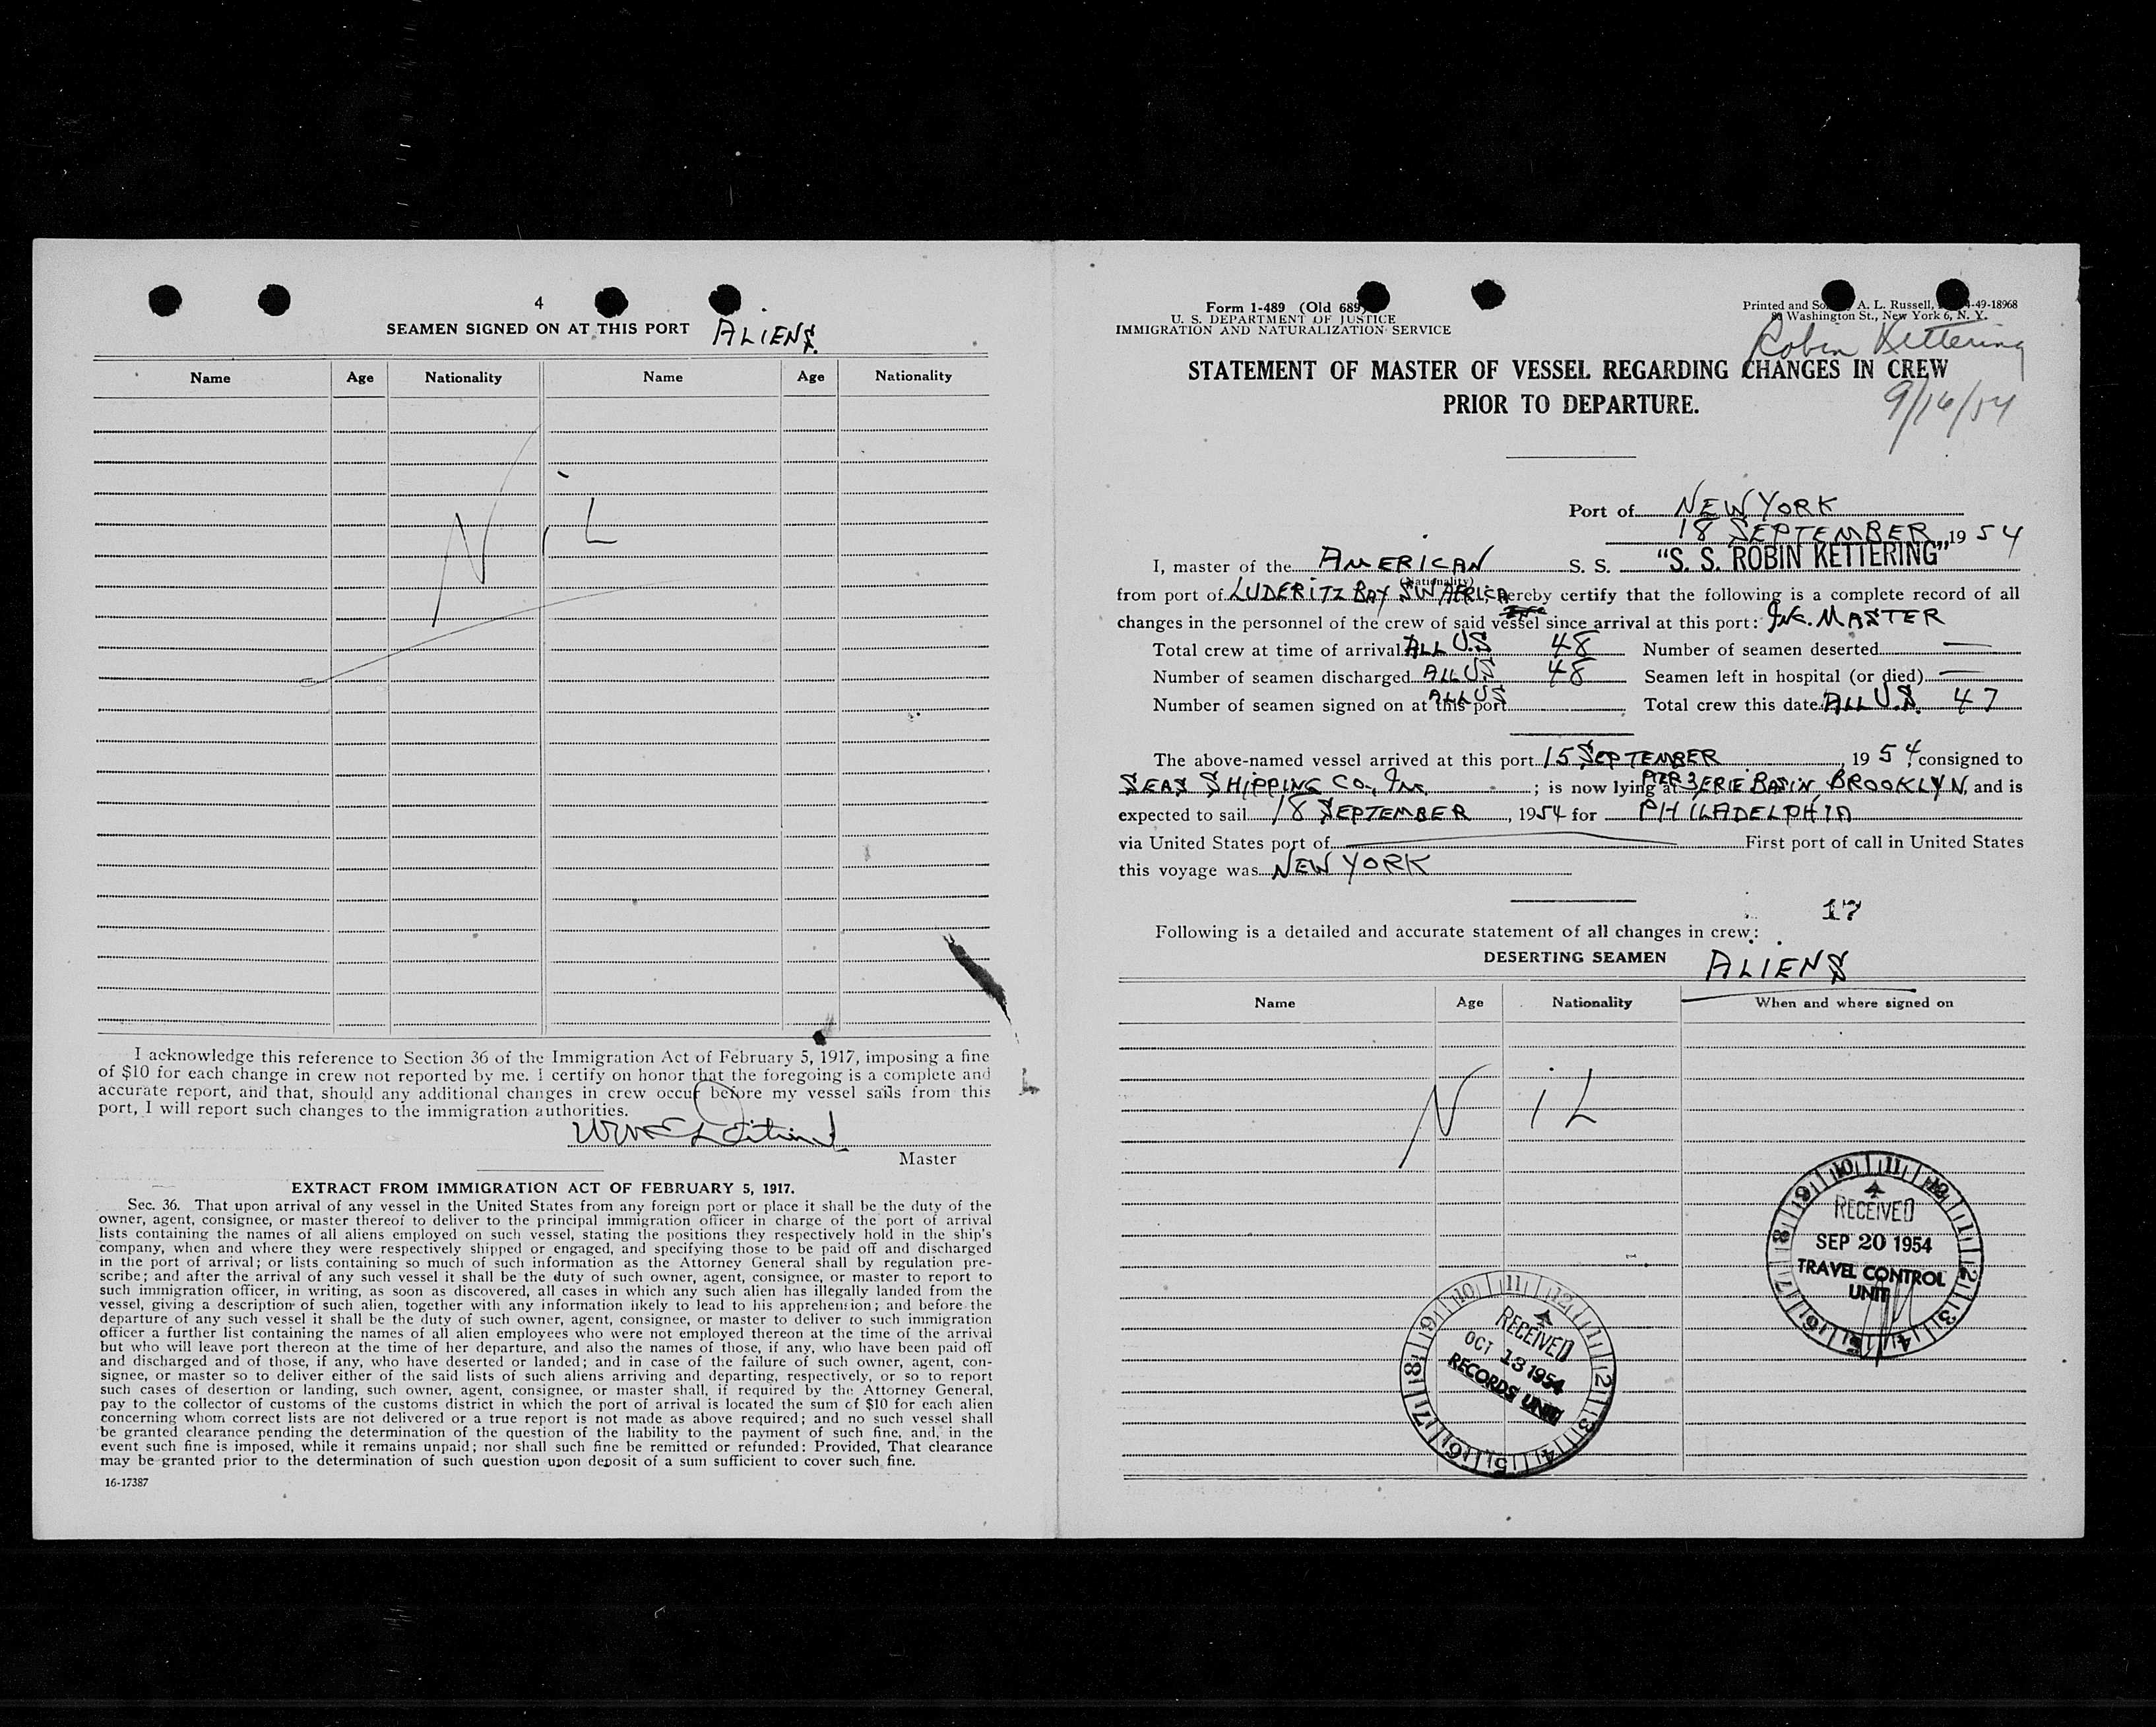 4
SEAMEN SIGNED ON AT THIS PORT ALIENS
Name Age Nationality Name Age Nationality
NiL
I acknowledge this reference to Section 36 of the Immigration Act of February 5, 1917, imposing a fine
of $10 for each change in crew not reported by me. I certify on honor that the foregoing is a complete and
accurate report, and that, should any additional changes in crew occur before my vessel sails from this
port, I will report such changes to the immigration authorities.
Master
EXTRACT FROM IMMIGRATION ACT OF FEBRUARY 5, 1917.
Sec. 36. That upon arrival of any vessel in the United States from any foreign port or place it shall be the duty of the
owner, agent, consignee, or master thereof to deliver to the principal immigration officer in charge of the port of arrival
lists containing the names of all aliens employed on such vessel, stating the positions they respectively hold in the ship's
company, when and where they were respectively shipped or engaged, and specifying those to be paid off and discharged
in the port of arrival; or lists containing so much of such information as the Attorney General shall by regulation pre-
scribe; and after the arrival of any such vessel it shall be the duty of such owner, agent, consignee, or master to report to
such immigration officer, in writing, as soon as discovered, all cases in which any such alien has illegally landed from the
vessel, giving a description of such alien, together with any information likely to lead to his apprehension; and before the
departure of any such vessel it shall be the duty of such owner, agent, consignee, or master to deliver to such immigration
officer a further list containing the names of all alien employees who were not employed thereon at the time of the arrival
but who will leave port thereon at the time of her departure, and also the names of those, if any, who have been paid off
and discharged and of those, if any, who have deserted or landed; and in case of the failure of such owner, agent, con-
signee, or master so to deliver either of the said lists of such aliens arriving and departing, respectively, or so to report
such cases of desertion or landing, such owner, agent, consignee, or master shall, if required by the Attorney General,
pay to the collector of customs of the customs district in which the port of arrival is located the sum of $10 for each alien
concerning whom correct lists are not delivered or a true report is not made as above required; and no such vessel shall
be granted clearance pending the determination of the question of the liability to the payment of such fine, and, in the
event such fine is imposed, while it remains unpaid; nor shall such fine be remitted or refunded: Provided, That clearance
may be granted prior to the determination of such question upon deposit of a sum sufficient to cover such fine.
16-17387
Form 1-489 (Old 689)
U. S. DEPARTMENT OF JUSTICE
IMMIGRATION AND NATURALIZATION SERVICE
Printed and A. L. Russell, -49-18968
Washington St., New York 6, N. Y.
Robin Kettering
9/16/54
STATEMENT OF MASTER OF VESSEL REGARDING CHANGES IN CREW
PRIOR TO DEPARTURE.
Port of NEW YORK
18 SEPTEMBER, 1954
I, master of the AMERICAN S. S. "S. S. ROBIN KETTERING"
(Nationality)
from port of LUDERITZ BAY SW AFRICA, hereby certify that the following is a complete record of all
changes in the personnel of the crew of said vessel since arrival at this port: MASTER
Total crew at time of arrival ALL U.S 48 Number of seamen deserted —
Number of seamen discharged ALL US 48 Seamen left in hospital (or died) —
Number of seamen signed on at this port ALL US Total crew this date ALL U.S. 47
The above-named vessel arrived at this port 15 SEPTEMBER, 1954, consigned to
SEAS SHIPPING CO., Inc. ; is now lying at PIER 3 ERIE BASIN, BROOKLYN, and is
expected to sail 18 SEPTEMBER, 1954 for PHILADELPHIA
via United States port of — First port of call in United States
this voyage was NEW YORK
17
Following is a detailed and accurate statement of all changes in crew:
DESERTING SEAMEN ALIENS
Name Age Nationality When and where signed on
NiL
RECEIVED
SEP 20 1954
TRAVEL CONTROL
UNIT
RECEIVED
OCT 13 1954
RECORDS UNIT